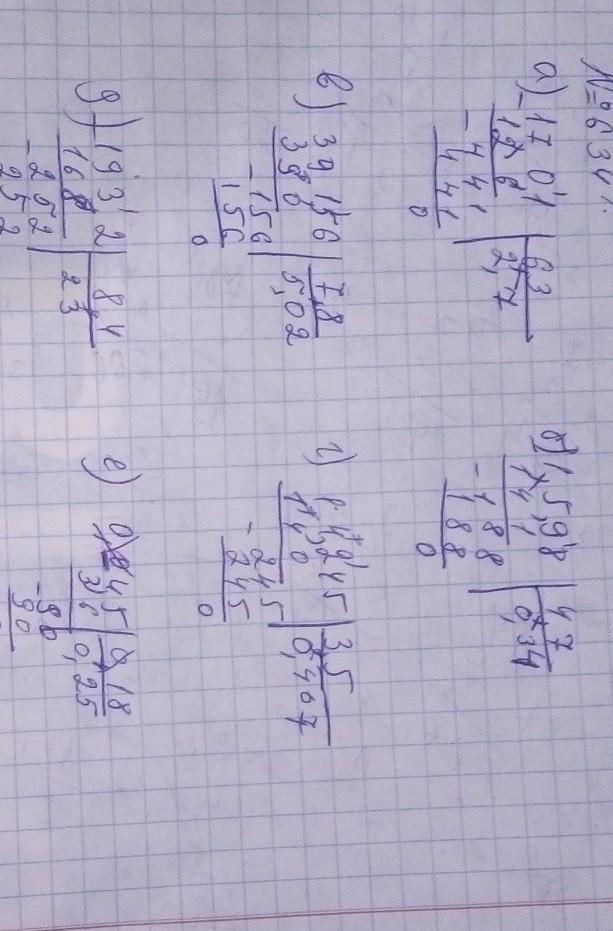 № 634.
а) 1701 | 63
- 126 | 2,7
- 441
441
0
б) 1,598 | 47
141 | 0,34
- 188
188
0
в) 39156 | 7,8
390 | 5,02
- 156
156
0
г) 1,4245 | 35
140 | 0,407
- 245
245
0
д) - 1932 | 8,4
168 | 23
- 252
252
е) 45 | 0,18
36 | 0,25
- 90
90